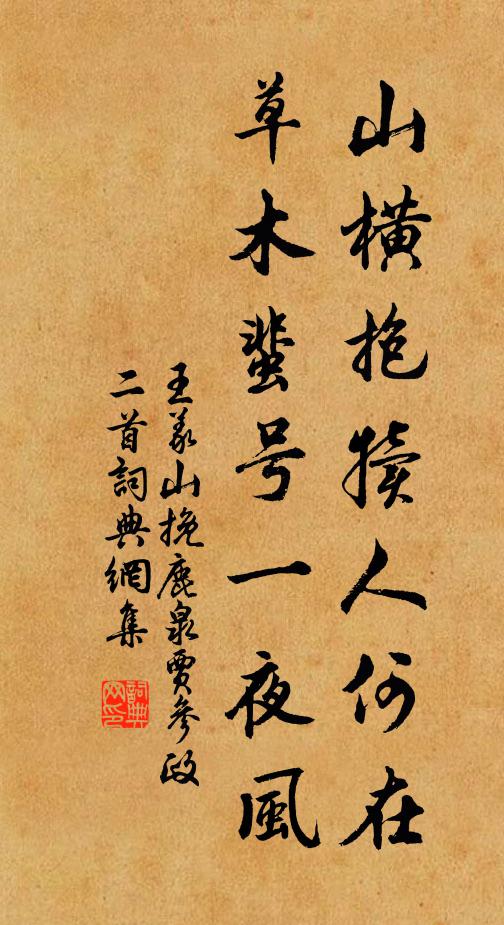 山橫抱犢人何在
草木蜚号一夜風
王義山挽鹿泉賈參政
二首詞典網集
詞典
网印